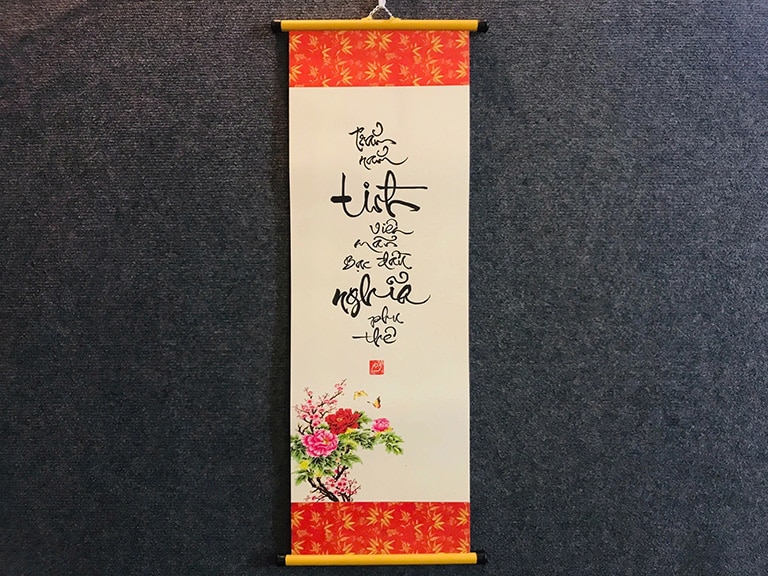 Trăm
năm
tình
viên
mãn
Bạc đầu
nghĩa
phu
thê